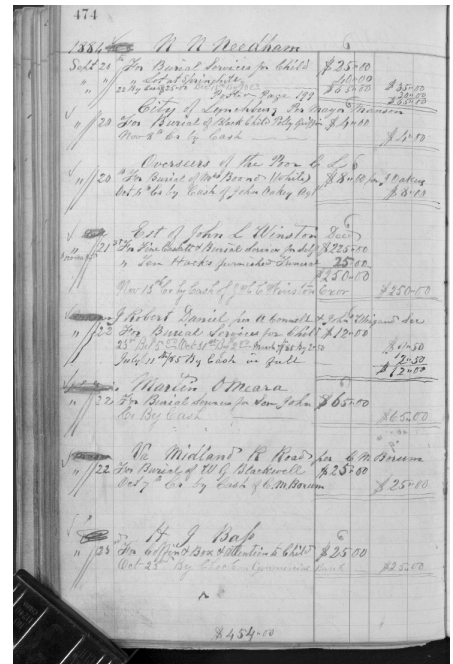 474
1884 N N Needham
Sept 20 For Burial Services for Child $25.00
" " " Lot at Springhill
$45.00 $35.00
Page 199
City of Lynchburg Per Mayor Manson
" 20 For Burial of Black Child Polly $4.00
Nov 8th Cr by Cash $4.00
Overseers of the Poor
" 20 For Burial of Mrs Boond (White) $8.00 for J Oakey
Oct 4th Cr by Cash of John Oakey Agt $8.00
Est of John C Winston Decd
" 21st For Fine Casket & Burial Services for Self $225.00
" Ten Hacks furnished Funeral 25.00
$250.00
Nov 13th Cr by Cash of J C Winston Exor $250.00
J Robert Daniel for
" 22 For Burial Services for Child $12.00
July 11th/85 By Cash in full $12.00
Martin O'Meara
" 22 For Burial Services for Son John $65.00
Cr By Cash $65.00
Va Midland R Road for C M Borum
" 22 For Burial of W G Blackwell $25.00
Oct 7th Cr by Cash of C. M Borum $25.00
H J Bass
" 23 For Coffin & Box & Attention to Child $25.00
Oct 25th By Check on Commercial Bank $25.00
$454.00